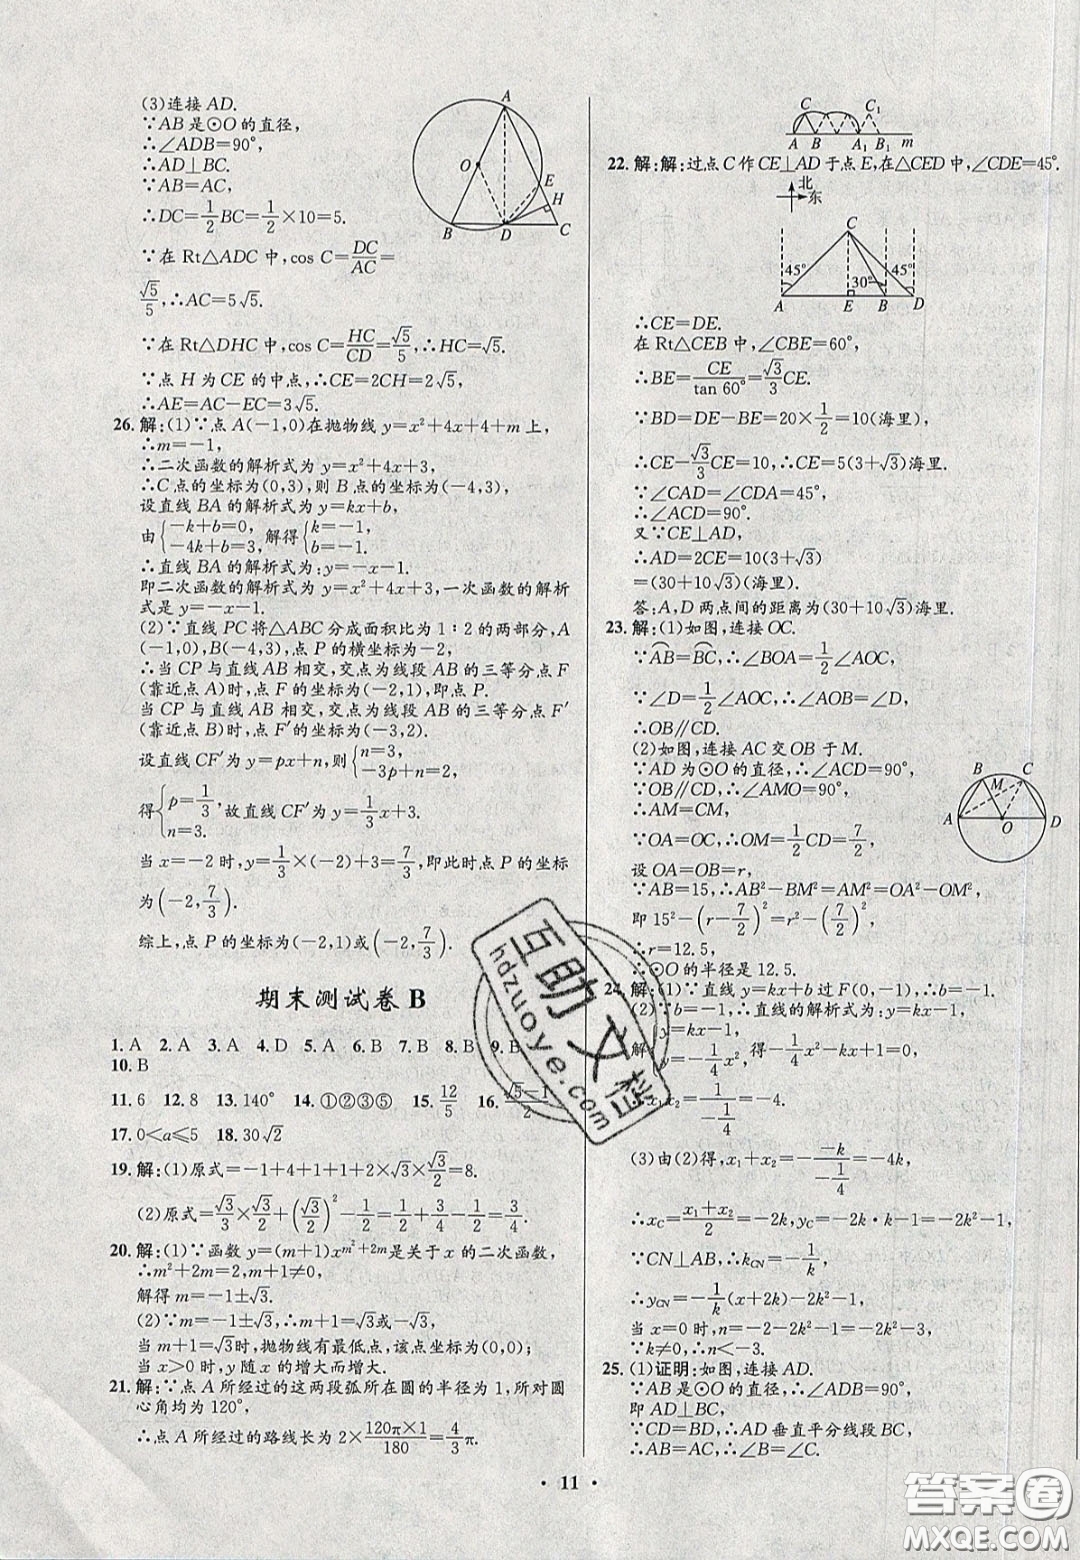 (3)连接AD.
∵AB是⊙O的直径,
∴∠ADB=90°,
∴AD⊥BC.
∵AB=AC,
∴DC=1/2BC=1/2×10=5.
∵在Rt△ADC中,cos C=DC/AC=
√5/5,∴AC=5√5.
∵在Rt△DHC中,cos C=HC/CD=√5/5,∴HC=√5.
∵点H为CE的中点,∴CE=2CH=2√5,
∴AE=AC-EC=3√5.
A
O
E
H
B D C
26.解:(1)∵点A(-1,0)在抛物线y=x²+4x+4+m上,
∴m=-1,
∴二次函数的解析式为y=x²+4x+3,
∴C点的坐标为(0,3),则B点的坐标为(-4,3),
设直线BA的解析式为y=kx+b,
由{-k+b=0, -4k+b=3, 解得{k=-1, b=-1.
∴直线BA的解析式为:y=-x-1.
即二次函数的解析式为y=x²+4x+3,一次函数的解析
式是y=-x-1.
(2)∵直线PC将△ABC分成面积比为1∶2的两部分,A
(-1,0),B(-4,3),点P的横坐标为-2,
∴当CP与直线AB相交,交点为线段AB的三等分点F
(靠近点A)时,点F的坐标为(-2,1),即点P.
当CP与直线AB相交,交点为线段AB的三等分点F′
(靠近点B)时,点F′的坐标为(-3,2).
设直线CF′为y=px+n,则{n=3, -3p+n=2,
得{p=1/3, n=3. 故直线CF′为y=1/3x+3.
当x=-2时,y=1/3×(-2)+3=7/3,即此时点P的坐标
为(-2,7/3).
综上,点P的坐标为(-2,1)或(-2,7/3).
期末测试卷B
1.A 2.A 3.A 4.D 5.A 6.B 7.B 8.B 9.B
10.B
11.6 12.8 13.140° 14.①②③⑤ 15.12/5 16.√5-1/2
17.0<a≤5 18.30√2
19.解:(1)原式=-1+4+1+1+2×√3×√3/2=8.
(2)原式=√3/3×√3/2+(√3/2)²-1/2=1/2+3/4-1/2=3/4.
20.解:(1)∵函数y=(m+1)x^(m²+2m)是关于x的二次函数,
∴m²+2m=2,m+1≠0,
解得m=-1±√3.
(2)∵m=-1±√3,∴m+1=√3或-√3,
当m+1=√3时,抛物线有最低点,该点坐标为(0,0);
当x>0时,y随x的增大而增大.
21.解:∵点A所经过的这两段弧所在圆的半径为1,所对圆
心角均为120°,
∴点A所经过的路线长为2×120π×1/180=4/3π.
C C₁
A B A₁ B₁ m
22.解:解:过点C作CE⊥AD于点E,在△CED中,∠CDE=45°.
北
东
C
45° 30° 45°
A E B D
∴CE=DE.
在Rt△CEB中,∠CBE=60°,
∴BE=CE/tan 60°=√3/3CE.
∵BD=DE-BE=20×1/2=10(海里),
∴CE-√3/3CE=10,∴CE=5(3+√3)海里.
∵∠CAD=∠CDA=45°,
∴∠ACD=90°.
又∵CE⊥AD,
∴AD=2CE=10(3+√3)
=(30+10√3)(海里).
答:A,D两点间的距离为(30+10√3)海里.
23.解:(1)如图,连接OC.
∵AB⌒=BC⌒,∴∠BOA=1/2∠AOC,
∵∠D=1/2∠AOC,∴∠AOB=∠D,
∴OB∥CD.
(2)如图,连接AC交OB于M.
∵AD为⊙O的直径,∴∠ACD=90°,
∵OB∥CD,∴∠AMO=90°,
∴AM=CM,
∵OA=OC,∴OM=1/2CD=7/2,
设OA=OB=r,
∵AB=15,∴AB²-BM²=AM²=OA²-OM²,
即15²-(r-7/2)²=r²-(7/2)²,
∴r=12.5,
∴⊙O的半径是12.5.
B C
M
A O D
24.解:(1)∵直线y=kx+b过F(0,-1),∴b=-1.
(2)∵b=-1,∴直线的解析式为y=kx-1,
解{y=kx-1, y=-1/4x², 得-1/4x²-kx+1=0,
x₂=1/-1/4=-4.
(3)由(2)得,x₁+x₂=--k/-1/4=-4k,
∴x_C=x₁+x₂/2=-2k,y_C=-2k·k-1=-2k²-1,
∵CN⊥AB,∴k_CN=-1/k,
∴y_CN=-1/k(x+2k)-2k²-1,
当x=0时,n=-2-2k²-1=-2k²-3,
∵k≠0,∴n<-3.
25.(1)证明:如图,连接AD.
∵AB是⊙O的直径,∴∠ADB=90°,
即AD⊥BC,
∵CD=BD,∴AD垂直平分线段BC,
∴AB=AC,∴∠B=∠C.
• 11 •
互助文档
hdzuoye.com
答案圈
MXQE.COM